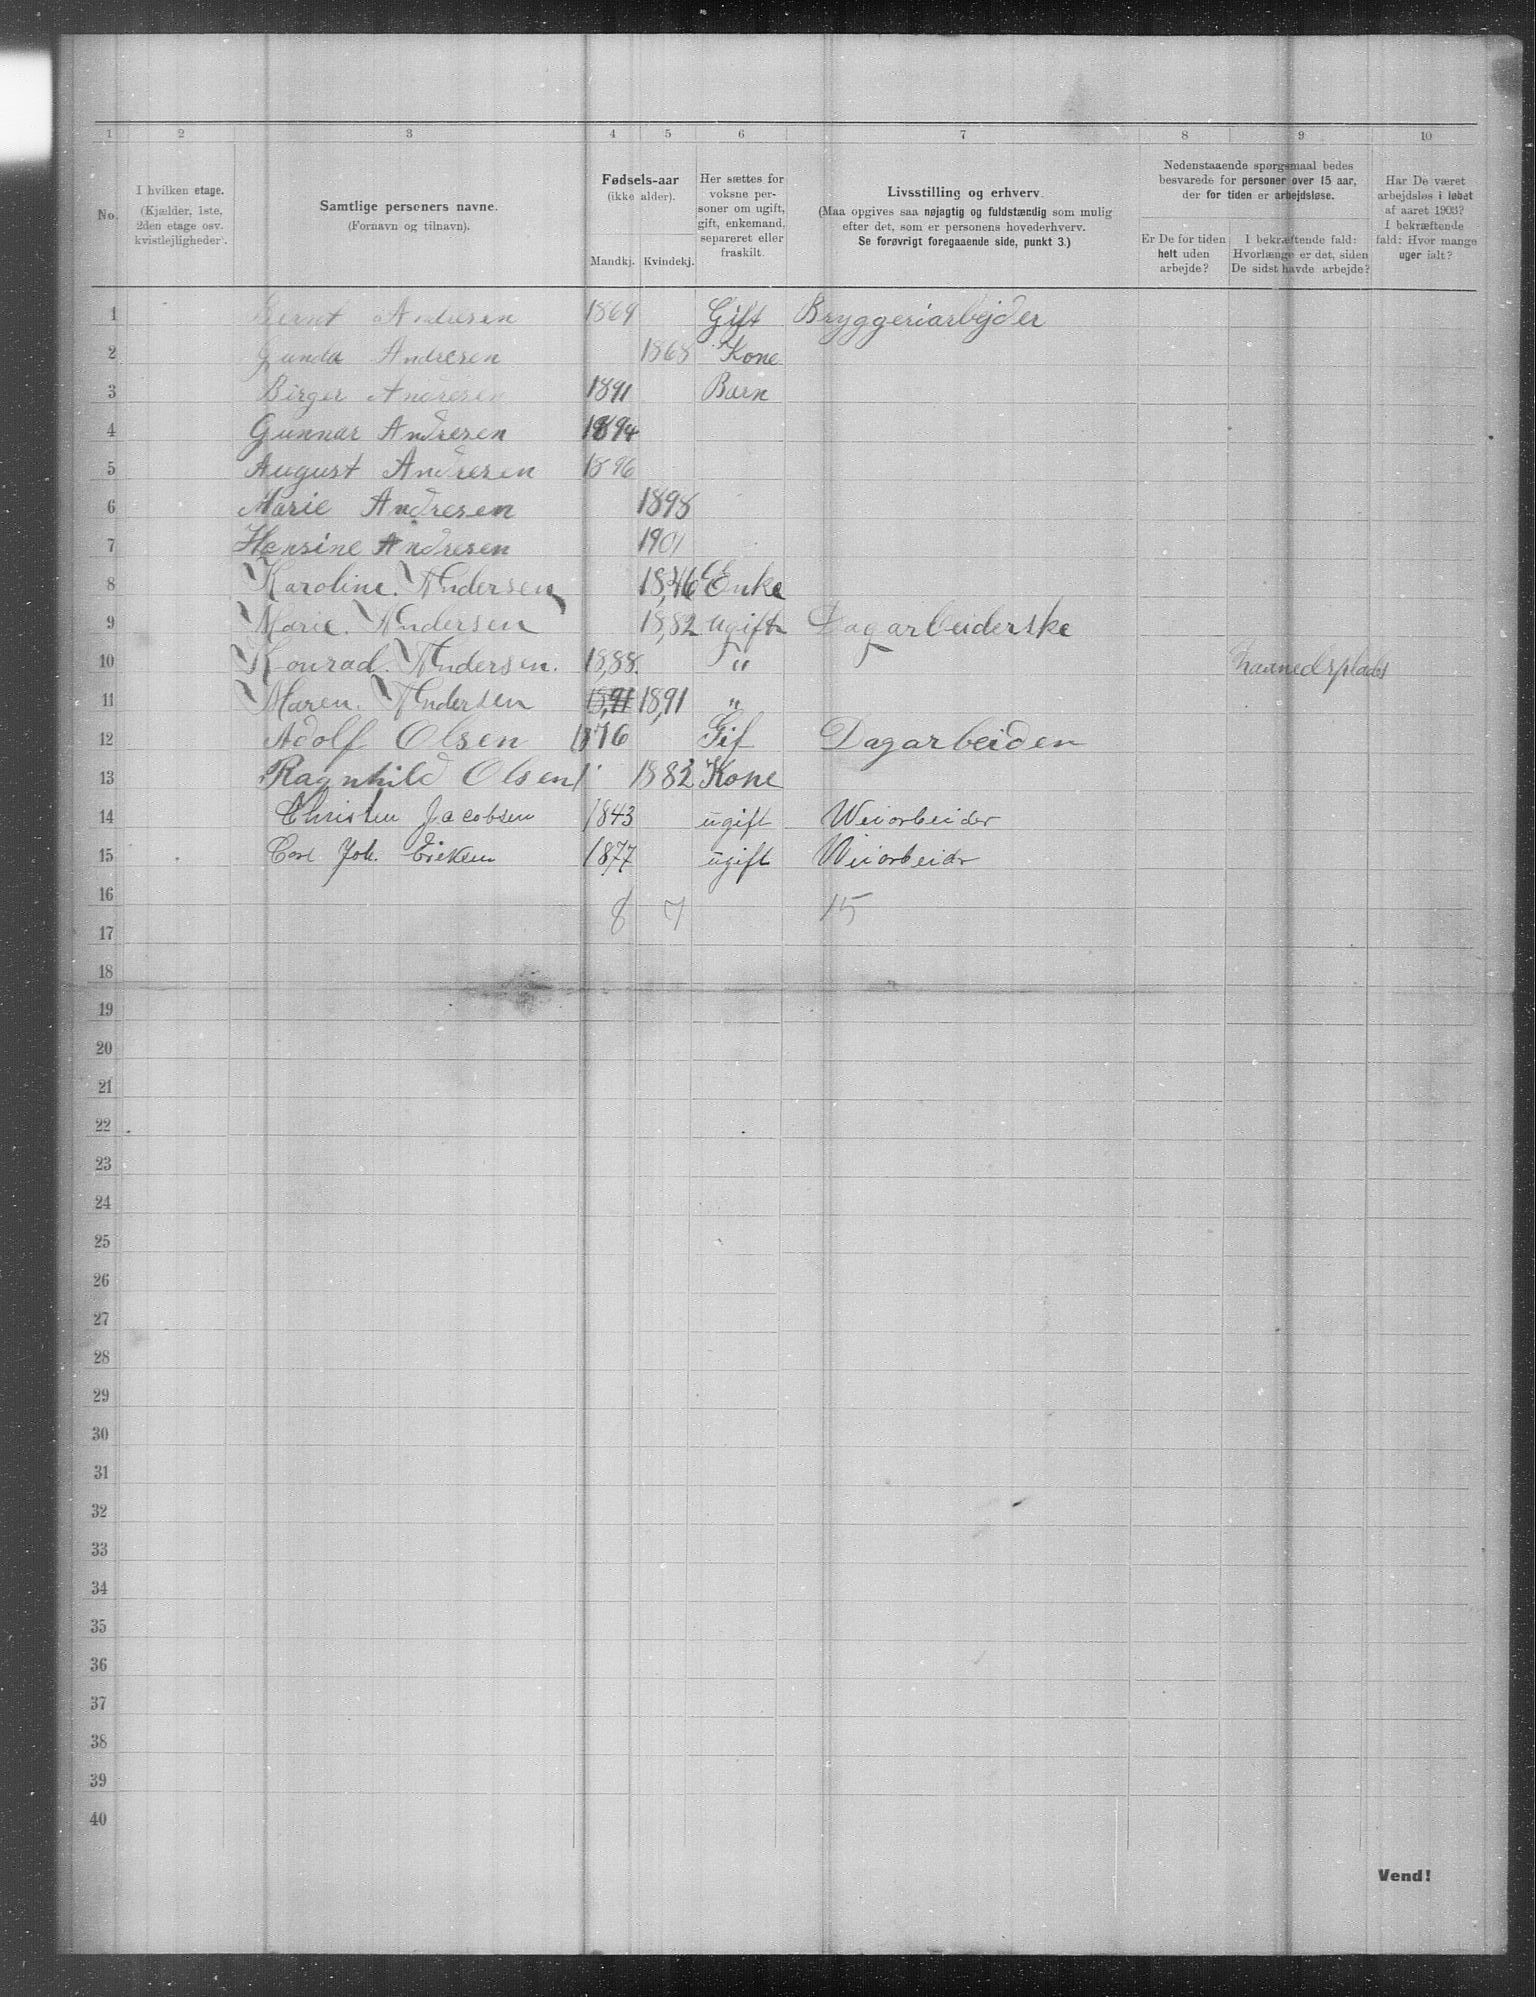 1 2 3 4 5 6 7 8 9 10
No.
I hvilken etage.
(Kjælder, 1ste,
2den etage osv.
kvistlejligheder).
Samtlige personers navne.
(Fornavn og tilnavn).
Fødsels-aar
(ikke alder).
Mandkj. Kvindekj.
Her sættes for
voksne per-
soner om ugift,
gift, enkemand,
separeret eller
fraskilt.
Livsstilling og erhverv.
(Maa opgives saa nøjagtig og fuldstændig som mulig
efter det, som er personens hovederhverv.
Se forøvrigt foregaaende side, punkt 3.)
Nedenstaaende spørgsmaal bedes
besvarede for personer over 15 aar,
der for tiden er arbejdsløse.
Er De for tiden
helt uden
arbejde?
I bekræftende fald:
Hvorlænge er det, siden
De sidst havde arbejde?
Har De været
arbejdsløs i løbet
af aaret 1903?
I bekræftende
fald: Hvor mange
uger ialt?
1 Bernt Andresen 1869 Gift Bryggeriarbejder
2 Gunda Andresen 1868 Kone
3 Birger Andresen 1891 Barn
4 Gunnar Andresen 1894
5 August Andresen 1896
6 Marie Andresen 1898
7 Hansine Andresen 1901
8 Karoline. Andersen 18,46 Enke
9 Marie. Andersen 18,82 ugift Dagarbeiderske
10 Konrad. Andersen. 18,88. "
11 Maren. Andersen 18,91 18,91 "
12 Adolf Olsen 1876 Gif Dagarbeiden
13 Ragnhild Olsen 1882 Kone
14 Christen Jacobsen 1843 ugift Weiarbeider
15 Carl Joh. Eriksen 1877 ugift Weiarbeidr
16
8 7 15
17
18
19
20
21
22
23
24
25
26
27
28
29
30
31
32
33
34
35
36
37
38
39
40
Vend!